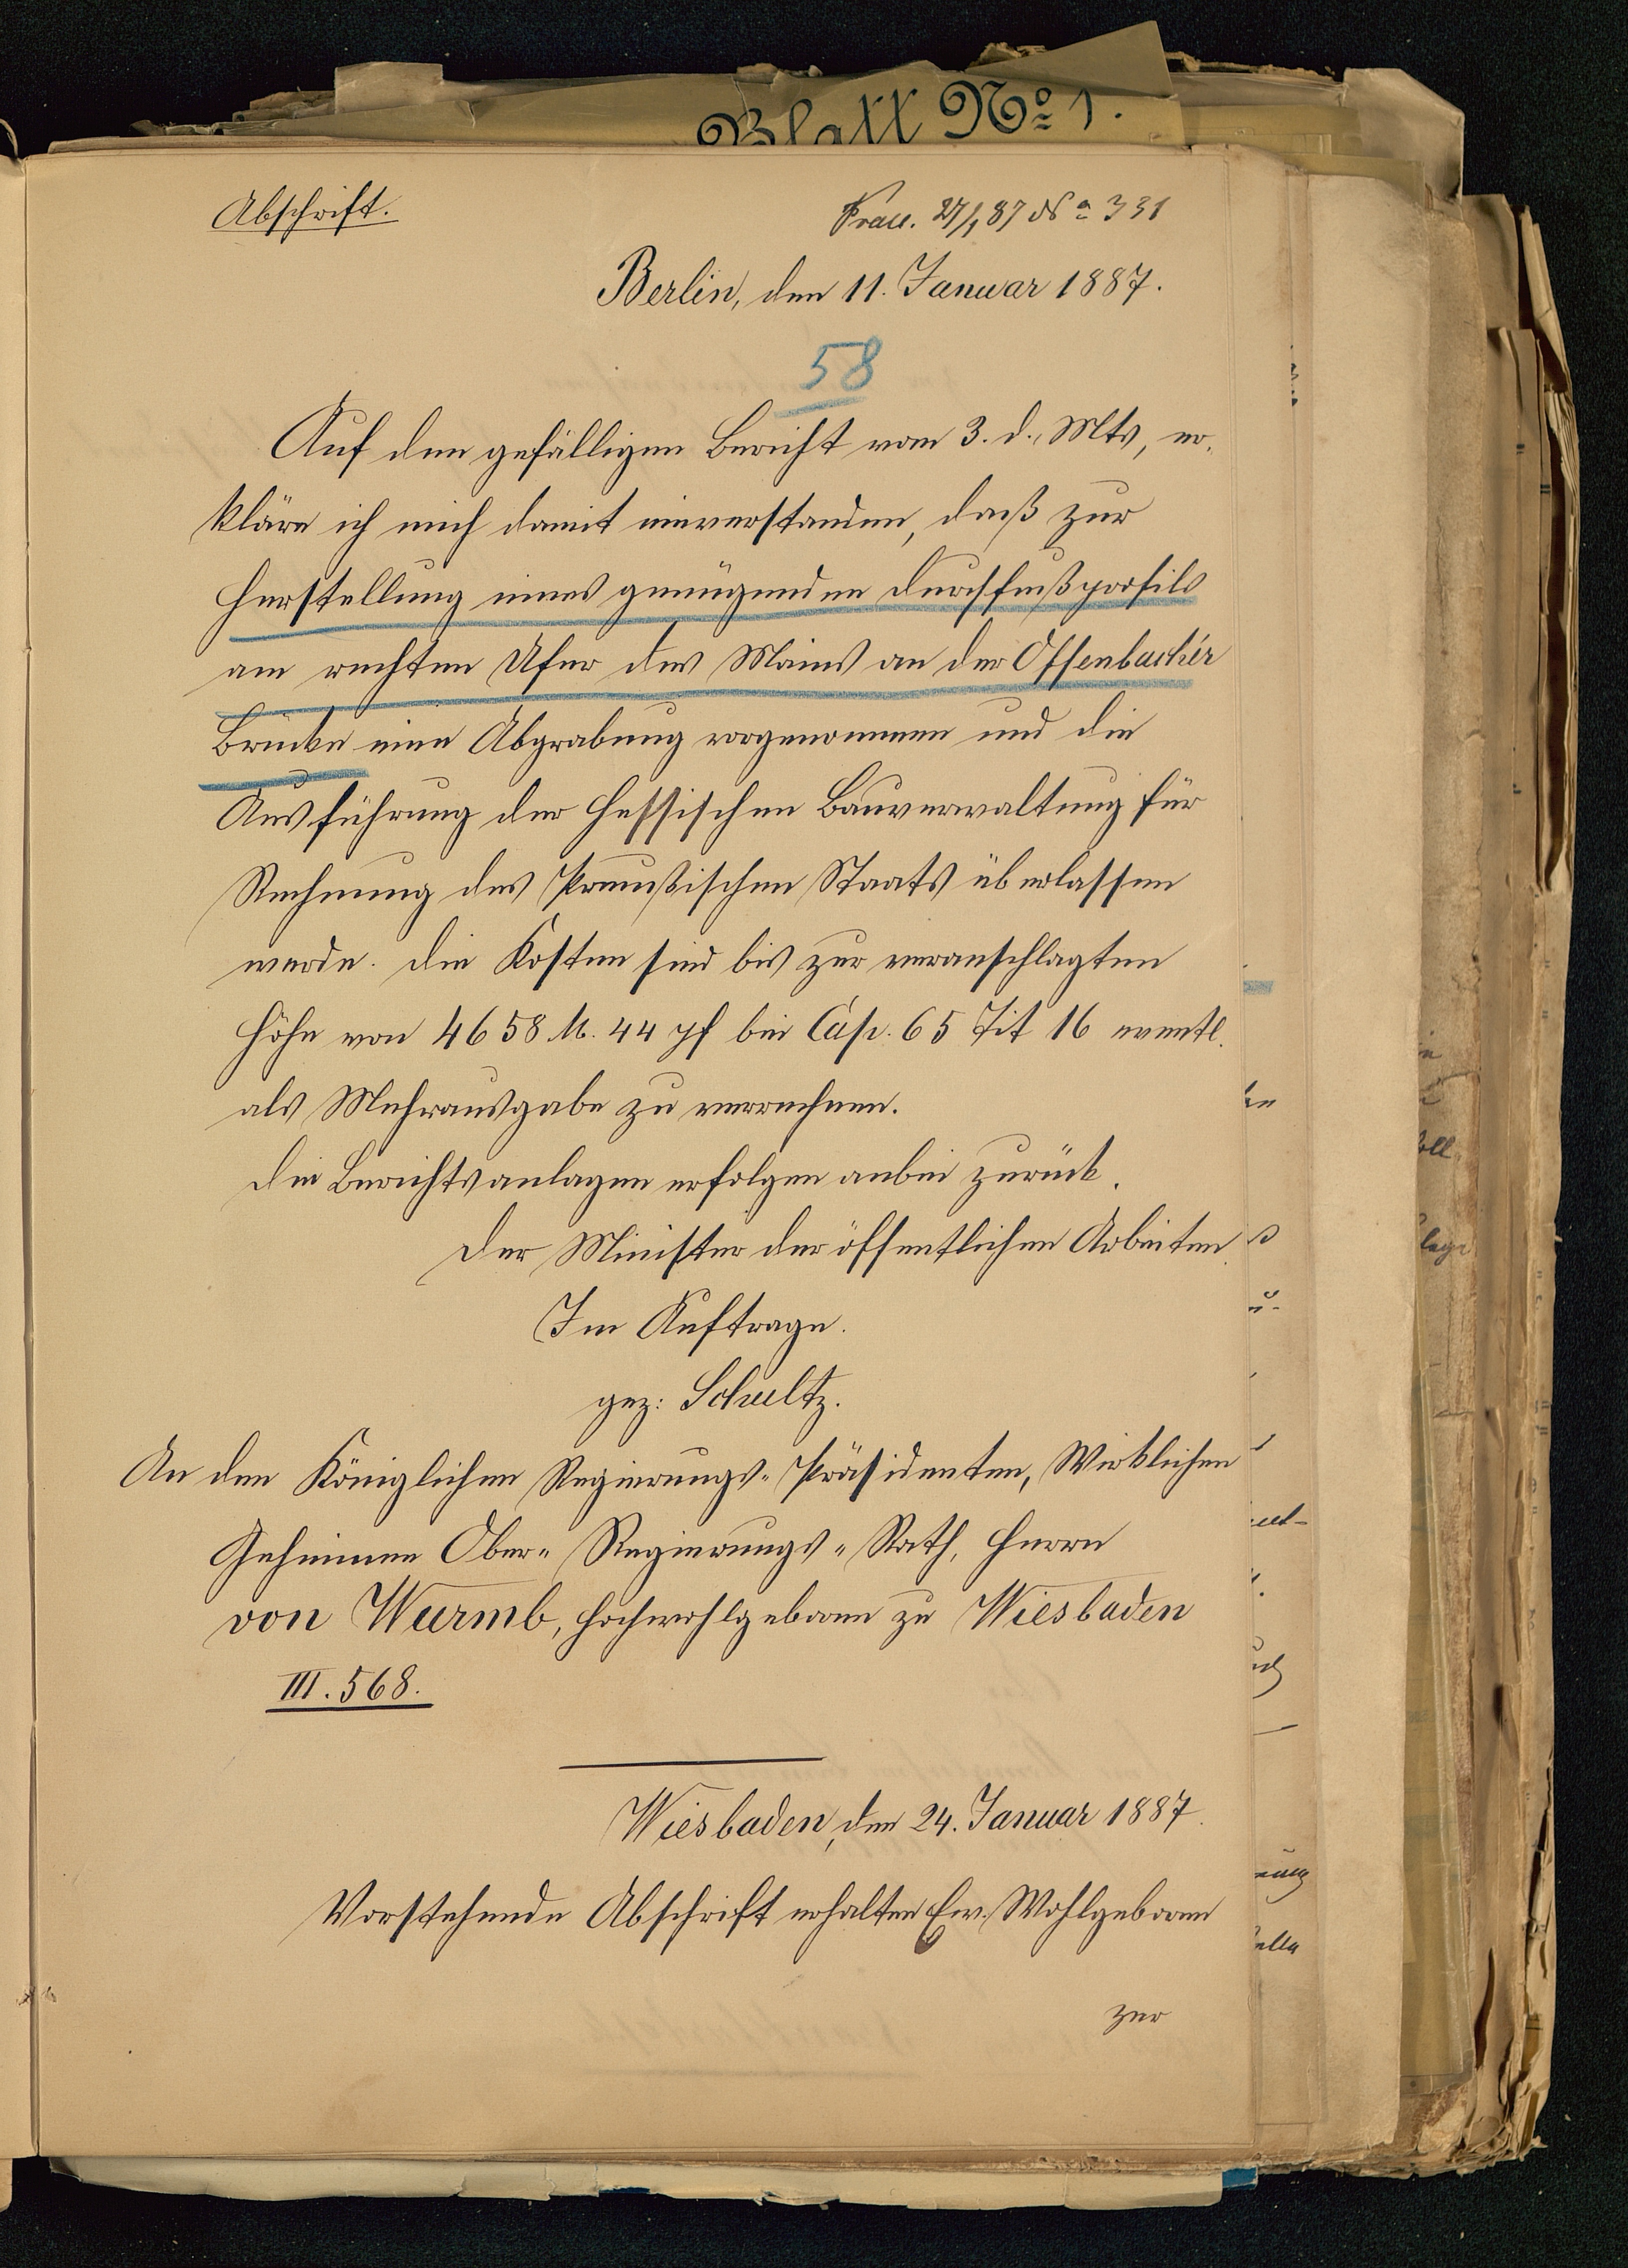 Blatt No 1.
Abschrift.
Praes. 27/1 87 No 331
Berlin, den 11. Januar 1887.
58
Auf den gefälligen Bericht vom 3. d. Mts, er-
kläre ich mich damit einverstanden, daß zur
Herstellung eines genügenden Durchflußprofils
am rechten Ufer des Mains an der Offenbacher
Brücke eine Abgrabung vorgenommen und die
Ausführung der Hessischen Bauverwaltung für
Rechnung des Preußischen Staats überlassen
werde. Die Kosten sind bis zur veranschlagten
Höhe von 4658 M. 44 pf bei Cap. 65 Tit 16 eventl.
als Mehrausgabe zu verrechnen.
Die Berichtsanlagen erfolgen anbei zurück.
Der Minister der öffentlichen Arbeiten.
Im Auftrage.
gez: Schultz.
An den Königlichen Regierungs-Präsidenten, Wirklichen
Geheimen Ober-Regierungs-Rath, Herrn
von Wurmb, Hochwohlgeboren zu Wiesbaden
III. 568.
Wiesbaden, den 24. Januar 1887.
Vorstehende Abschrift erhalten Ew. Wohlgeboren
zur